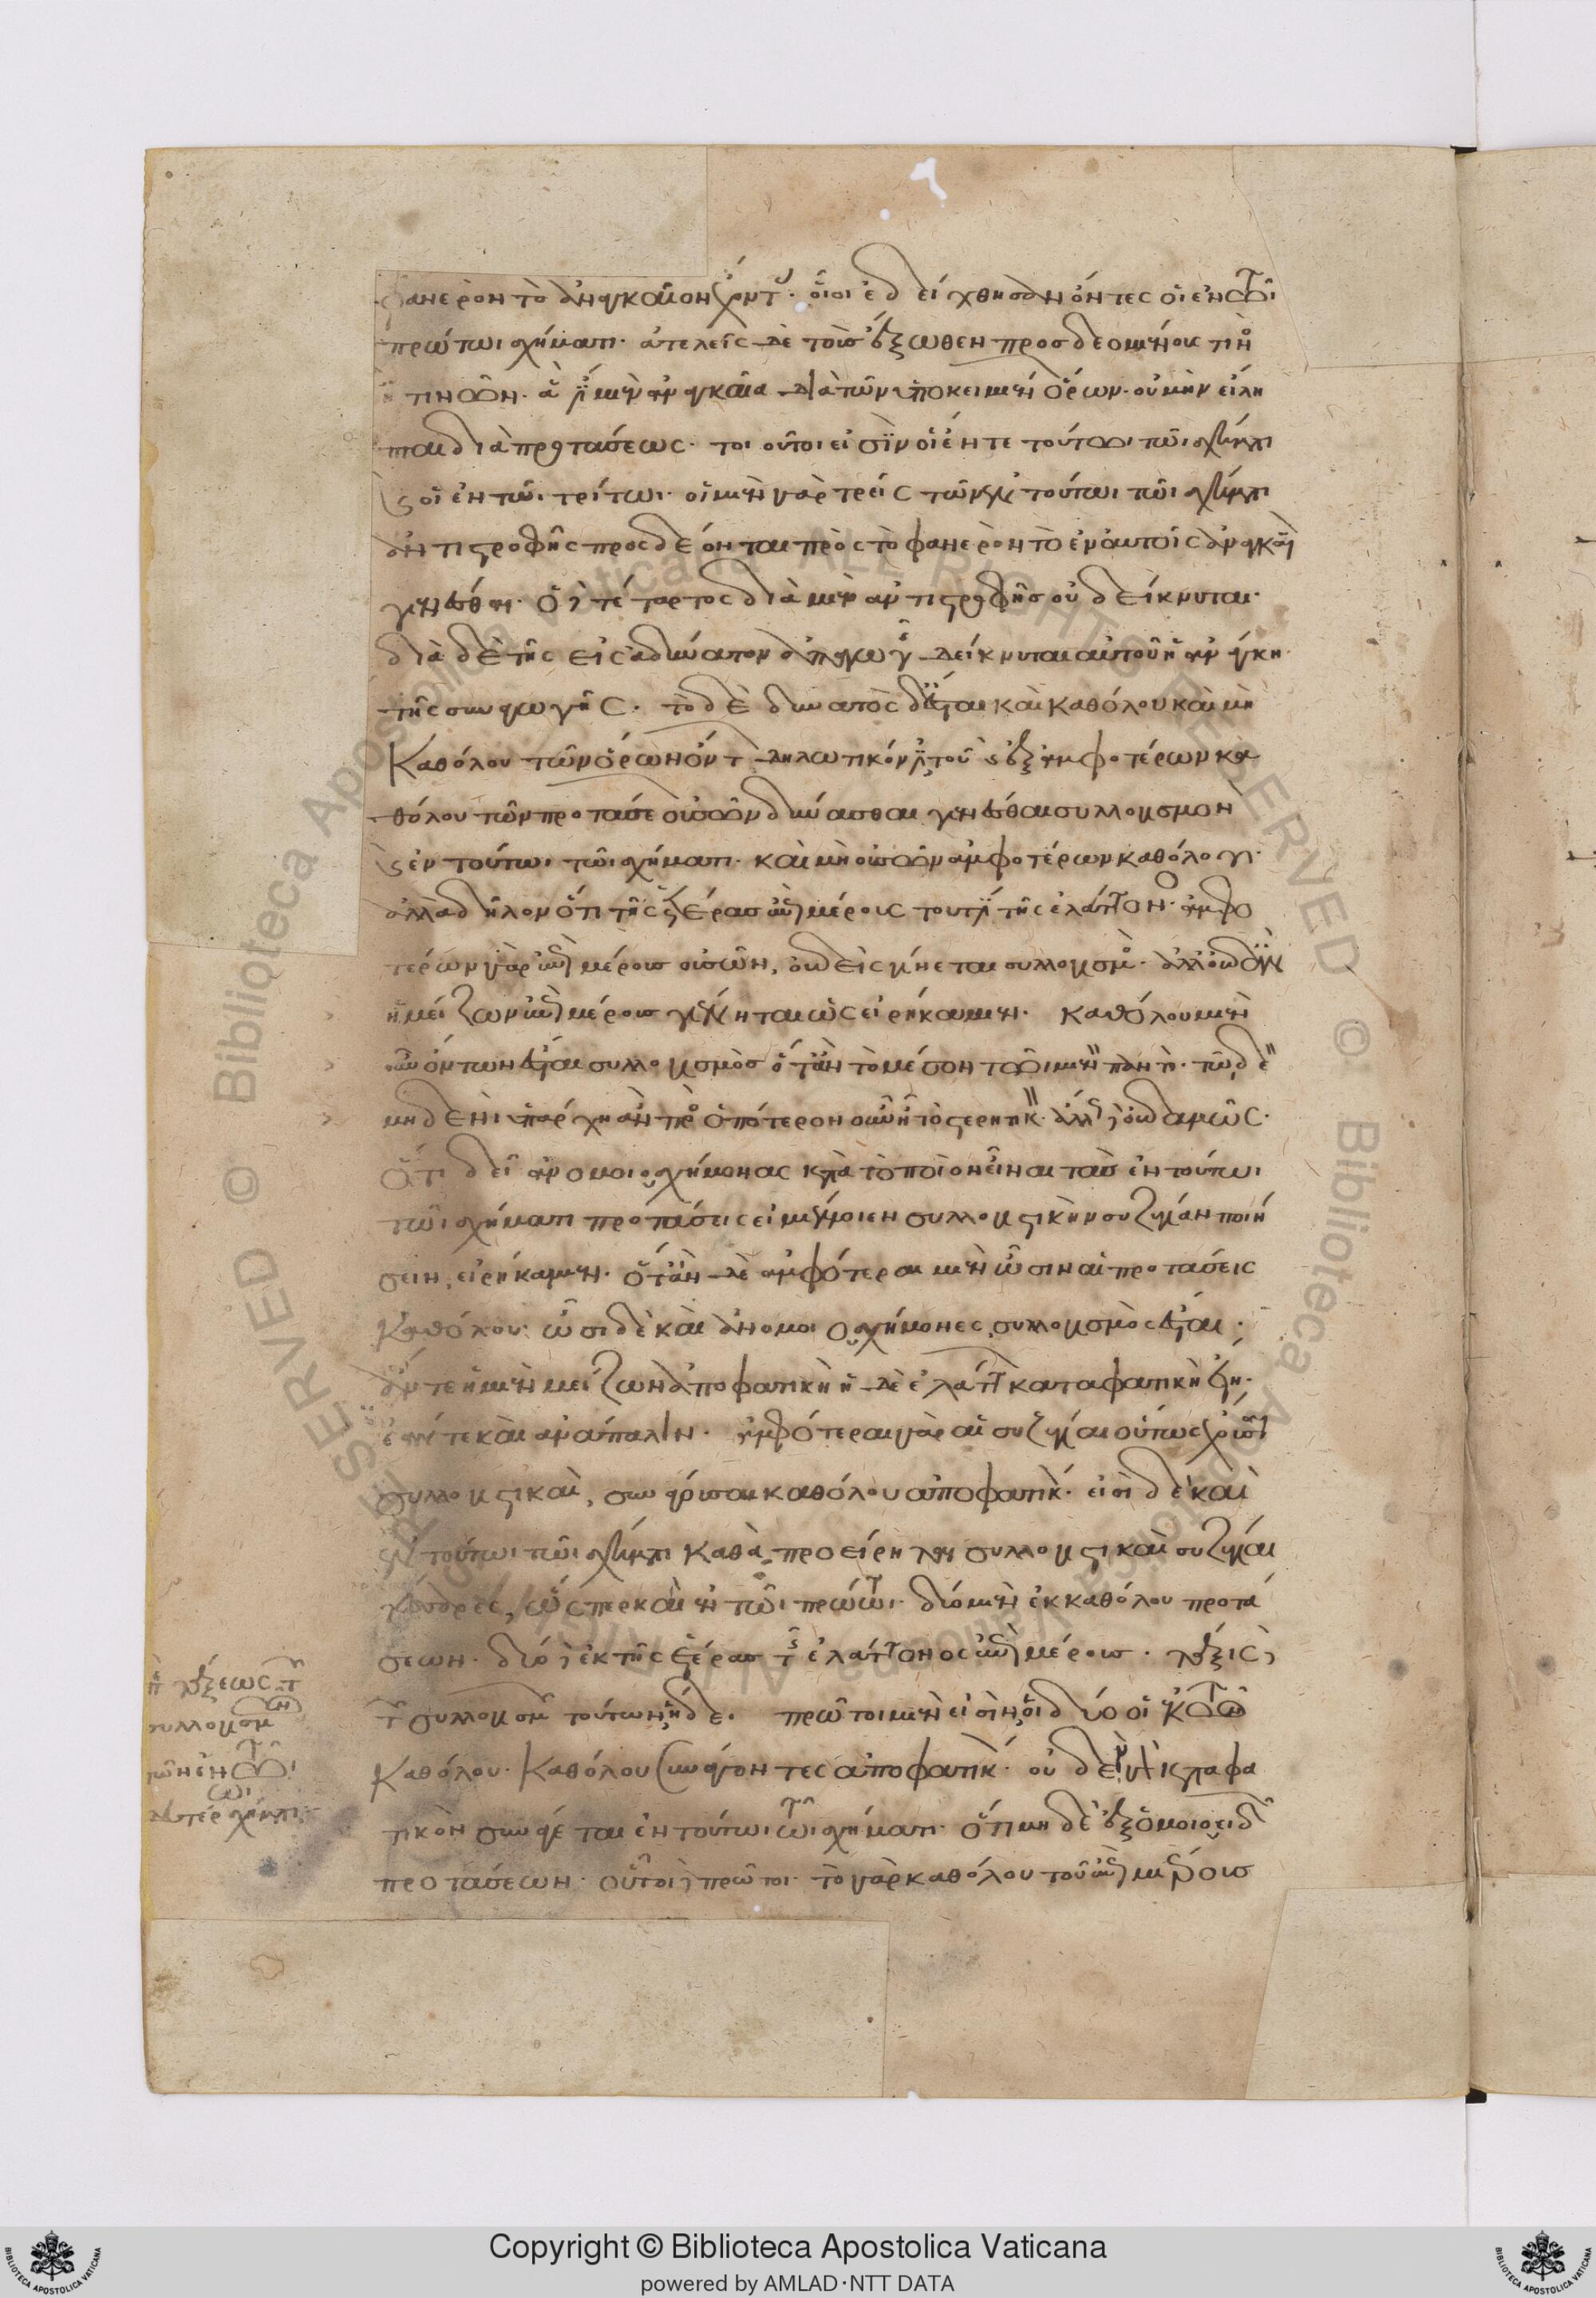 φανερὸν τὸ ἀναγκαῖον ἔχοντες. οἷοι ἐδείχθησαν ὄντες οἱ ἐν τῶι
πρώτωι σχήματι. ἀτελεῖς δὲ τοὺς ἔξωθεν προσδεομένους τινὸς
ἢ τινῶν. ἃ ἔστι μὲν ἀναγκαῖα διὰ τῶν ὑποκειμένων ὅρων. οὐ μὴν εἴλη
πται διὰ προτάσεως. τοιοῦτοι εἰσὶν οἵ ἔν τε τούτωι τῶι σχήματι
καὶ οἱ ἐν τῶι τρίτωι. οἱ μὲν γὰρ τρεῖς τῶν ἐν τούτωι τῶι σχήματι
ἀντιστροφῆς προσδέονται πρὸς τὸ φανερὸν τὸ ἐν αὐτοῖς ἀναγκαῖον
γενέσθαι. ὁ δὲ τέταρτος διὰ μὲν ἀντιστροφῆς οὐ δείκνυται.
διὰ δὲ τῆς εἰς ἀδύνατον ἀπαγωγῆς δείκνυται αὐτοῦ ἡ ἀνάγκη
τῆς συναγωγῆς. τὸ δὲ δυνατὸς ἔσται καὶ καθόλου καὶ μὴ
καθόλου τῶν ὅρων ὄντων δηλωτικόν ἐστι τοῦ καὶ ἐξ ἀμφοτέρων κα
θόλου τῶν προτάσεων οὐσῶν δύνασθαι γενέσθαι συλλογισμὸν
καὶ ἐν τούτωι τῶι σχήματι. καὶ μὴ οὐσῶν ἀμφοτέρων καθόλου.
ἀλλὰ δῆλον ὅτι τῆς ἑτέρας ἐπὶ μέρους τουτέστι τῆς ἐλάττονος. ἀμφο
τέρων γὰρ ἐπὶ μέρους οὐσῶν, οὐδεὶς γίνεται συλλογισμός. ἀλλ' οὐδ' ἂν
ἡ μείζων ἐπὶ μέρους γένηται ὡς εἰρήκαμεν. καθόλου μὲν
οὖν ὄντων ἔσται συλλογισμὸς ὅταν τὸ μέσον τῶι μὲν παντὶ. τῶι δὲ
μηδενὶ ὑπάρχη ἂν πρὸς ὁποτερονοῦν ἦ τὸ στερητικόν. ἄλλως δ' οὐδαμῶς.
ὅτι δεῖ ἀνομοιοσχήμονας κατὰ τὸ ποῖον εἶναι τὰς ἐν τούτωι
τῶι σχήματι προτάσεις εἰ μέλλοιεν συλλογιστικὴν συζυγίαν ποιή
σειν, εἰρήκαμεν. ὅταν δὲ ἀμφότεραι μὲν ὦσιν αἱ προτάσεις
καθόλου. ὦσι δὲ καὶ ἀνομοιοσχήμονες, συλλογισμὸς ἔσται.
ἄν τε ἡ μὲν μείζων ἀποφατικὴ ἡ δὲ ἐλάττων καταφατικὴ ἦ.
ἐάν τε καὶ ἀνάπαλιν. ἀμφότεραι γὰρ αἱ συζυγίαι οὕτως ἔχουσαι
συλλογιστικαὶ, συνάγουσαι καθόλου ἀποφατικόν. εἰσὶ δὲ καὶ
ἐν τούτωι τῶι σχήματι καθὰ προείρηται συλλογιστικαὶ συζυγίαι
τέσσαρες, ὥσπερ καὶ ἐν τῶι πρώτωι. δύο μὲν ἐκ καθόλου προτά
σεων. δύο δὲ ἐκ τῆς ἑτέρας τῆς ἐλάττονος ἐπὶ μέρους. λέξις δὲ
τῶν συλλογισμῶν τούτων ἥδε. πρῶτοι μὲν εἰσὶν οἱ δύο οἱ ἐκ τῶν
καθόλου. καθόλου συνάγοντες ἀποφατικόν. οὐδὲν γὰρ καταφα
τικὸν συνάγεται ἐν τούτωι τῶι σχήματι. ὅτι μηδὲ ἐξ ὁμοιοειδῶν
προτάσεων. οὗτοι δὲ πρῶτοι. τὸ γὰρ καθόλου τοῦ ἐπὶ μέρους
λέξεως τῶν
συλλογισμῶν
τῶν ἐν τῶι
δευτέρωι σχήματι
Copyright © Biblioteca Apostolica Vaticana
powered by AMLAD·NTT DATA